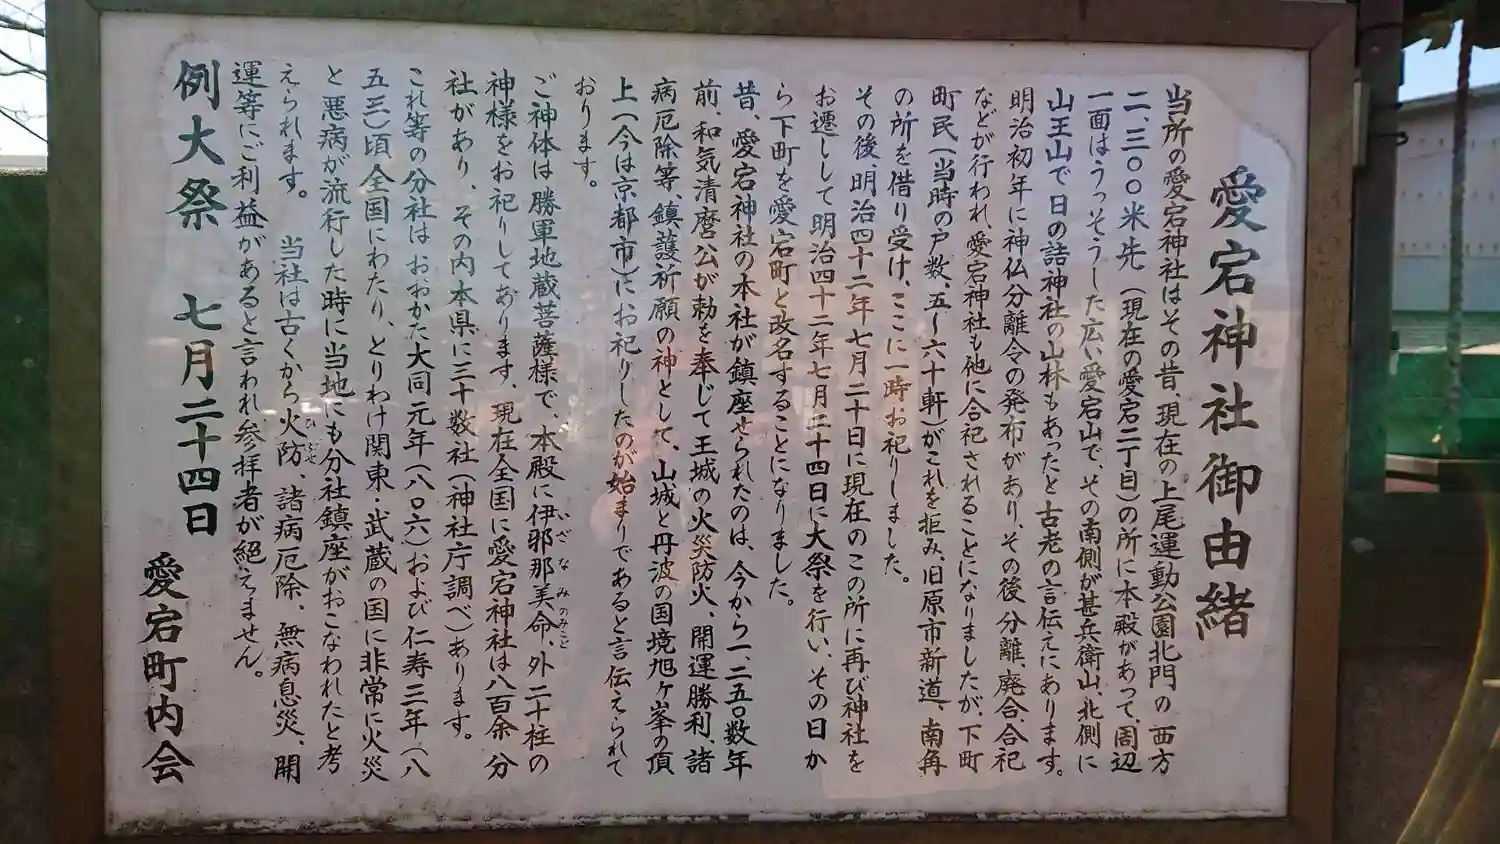 愛宕神社御由緒
当所の愛宕神社はその昔、現在の上尾運動公園北門の西方
二、三〇〇米先(現在の愛宕二丁目)の所に本殿があって、周辺
一面はうっそうした広い愛宕山で、その南側が甚兵衛山、北側に
山王山で日の詰神社の山林もあったと古老の言伝えにあります。
明治初年に神仏分離令の発布があり、その後分離、廃合、合祀
などが行われ、愛宕神社も他に合祀されることになりましたが、下町
町民(当時の戸数、五~六十軒)がこれを拒み、旧原市新道、南角
の所を借り受け、ここに一時お祀りしました。
その後明治四十二年七月二十日に現在のこの所に再び神社を
お遷しして明治四十二年七月二十四日に大祭を行い、その日か
ら下町を愛宕町と改名することになりました。
昔、愛宕神社の本社が鎮座せられたのは、今から一、二五〇数年
前、和気清麿公が勅を奉じて王城の火災防火、開運勝利、諸
病厄除等、鎮護祈願の神として、山城と丹波の国境旭ヶ峯の頂
上(今は京都市)にお祀りしたのが始まりであると言伝えられて
おります。
ご神体は勝軍地蔵菩薩様で、本殿に伊邪那美命、外二十柱の
いざなみのみこと
神様をお祀りしてあります、現在全国に愛宕神社は八百余分
社があり、その内本県に三十数社(神社庁調べ)あります。
これ等の分社はおおかた大同元年(八〇六)および仁寿三年(八
五三)頃全国にわたり、とりわけ関東・武蔵の国に非常に火災
と悪病が流行した時に当地にも分社鎮座がおこなわれたと考
えられます。 当社は古くから火防、諸病厄除、無病息災、開
ひぶせ
運等にご利益があると言われ参拝者が絶えません。
例大祭 七月二十四日
愛宕町内会